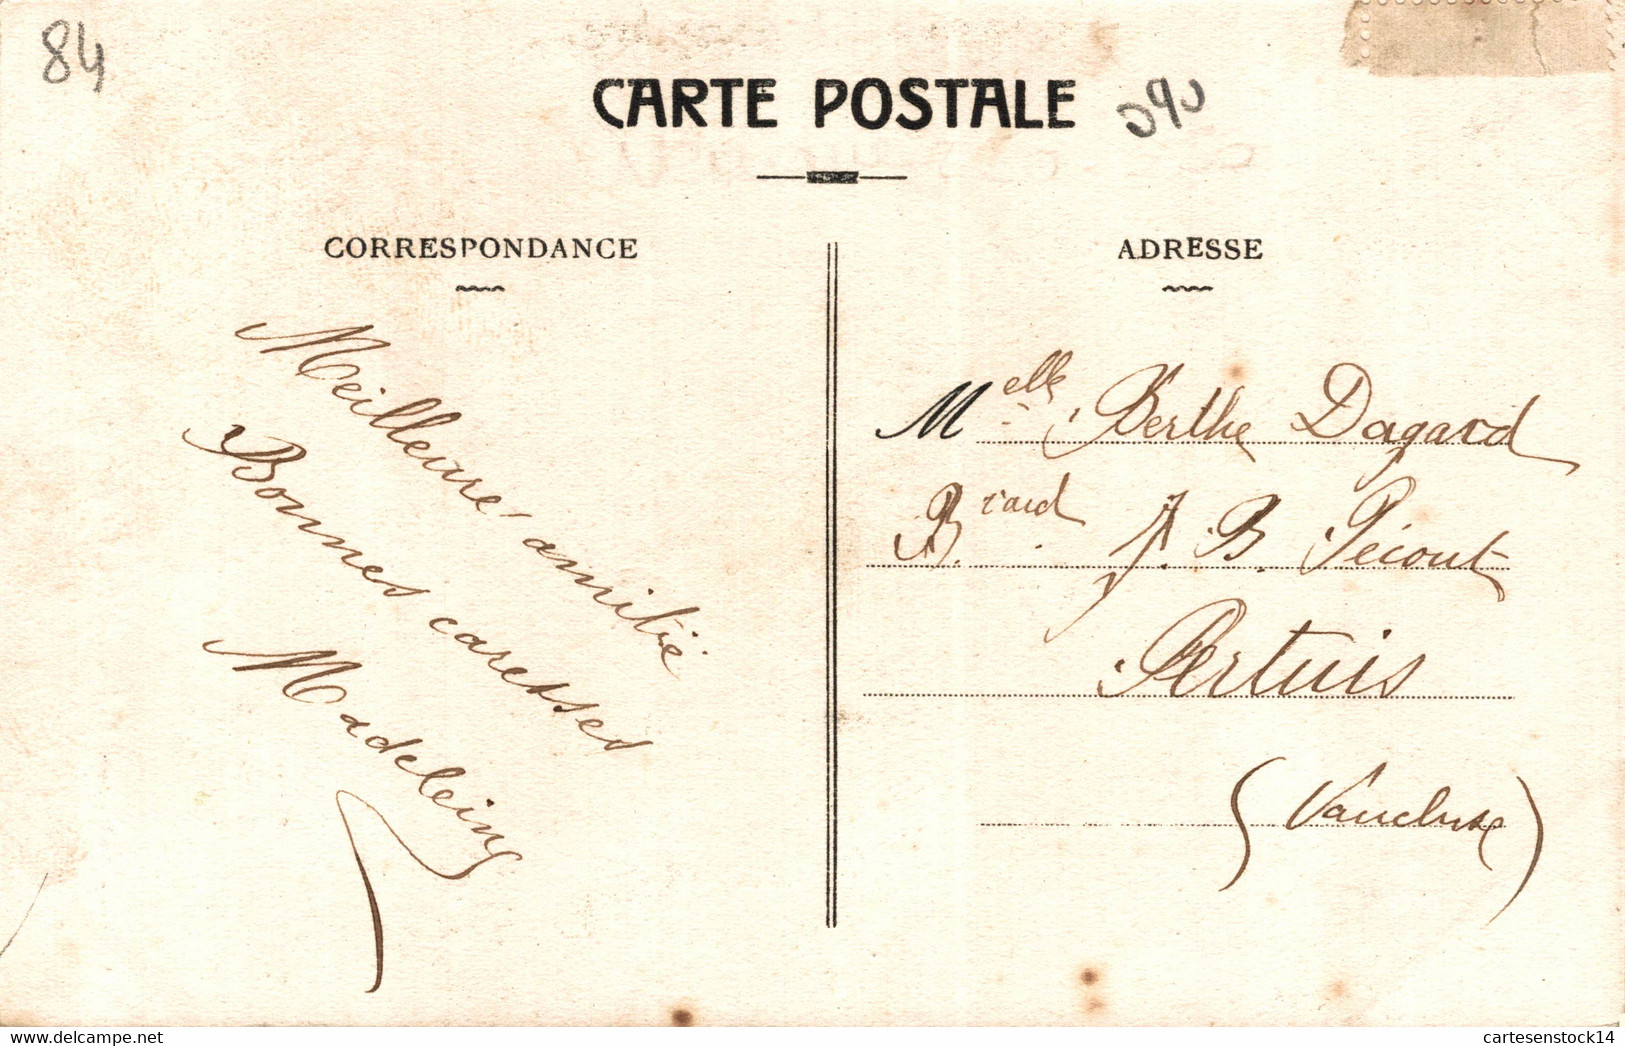 84
CARTE POSTALE
CORRESPONDANCE
Meilleure amitié
Bonnes caresses
Madeleine
ADRESSE
Melle Berthe Dagard
Bard J. B. Pécout
Pertuis
(Vaucluse)
cartesenstock14